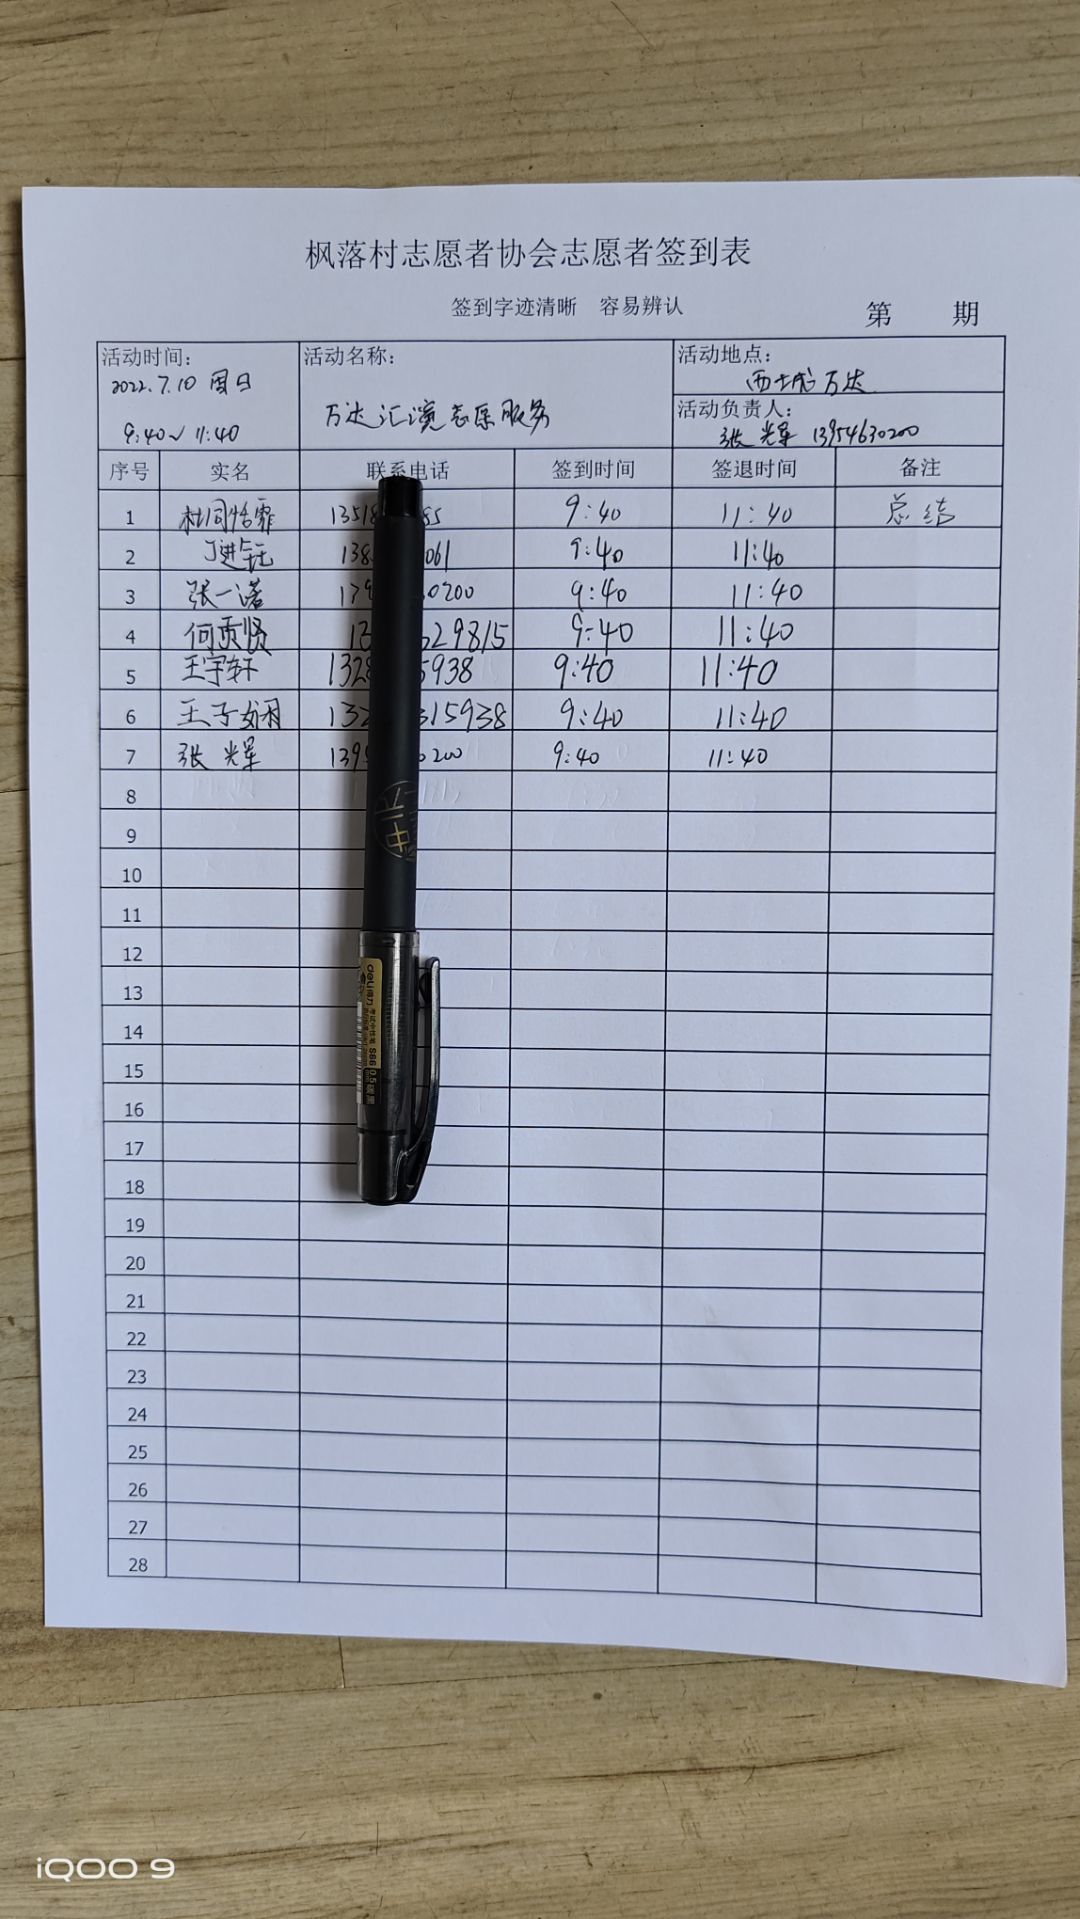 枫落村志愿者协会志愿者签到表
签到字迹清晰 容易辨认
第 期
活动时间: 活动名称: 活动地点:
2022.7.10 周日 西城万达
万达汇演志愿服务 活动负责人:
9:40~11:40 张光军 13954630200
序号 实名 联系电话 签到时间 签退时间 备注
1 杜同恬霏 1351 85 9:40 11:40 总结
2 丁进钰 138 061 9:40 11:40
3 张一诺 139 0200 9:40 11:40
4 何贡贤 13 29815 9:40 11:40
5 王宇轩 1328 5938 9:40 11:40
6 王子娴 132 315938 9:40 11:40
7 张光军 139 0200 9:40 11:40
8
9
10
11
12
13
14
15
16
17
18
19
20
21
22
23
24
25
26
27
28
deli 得力 考试中性笔 S66 0.5 碳黑
iQOO 9